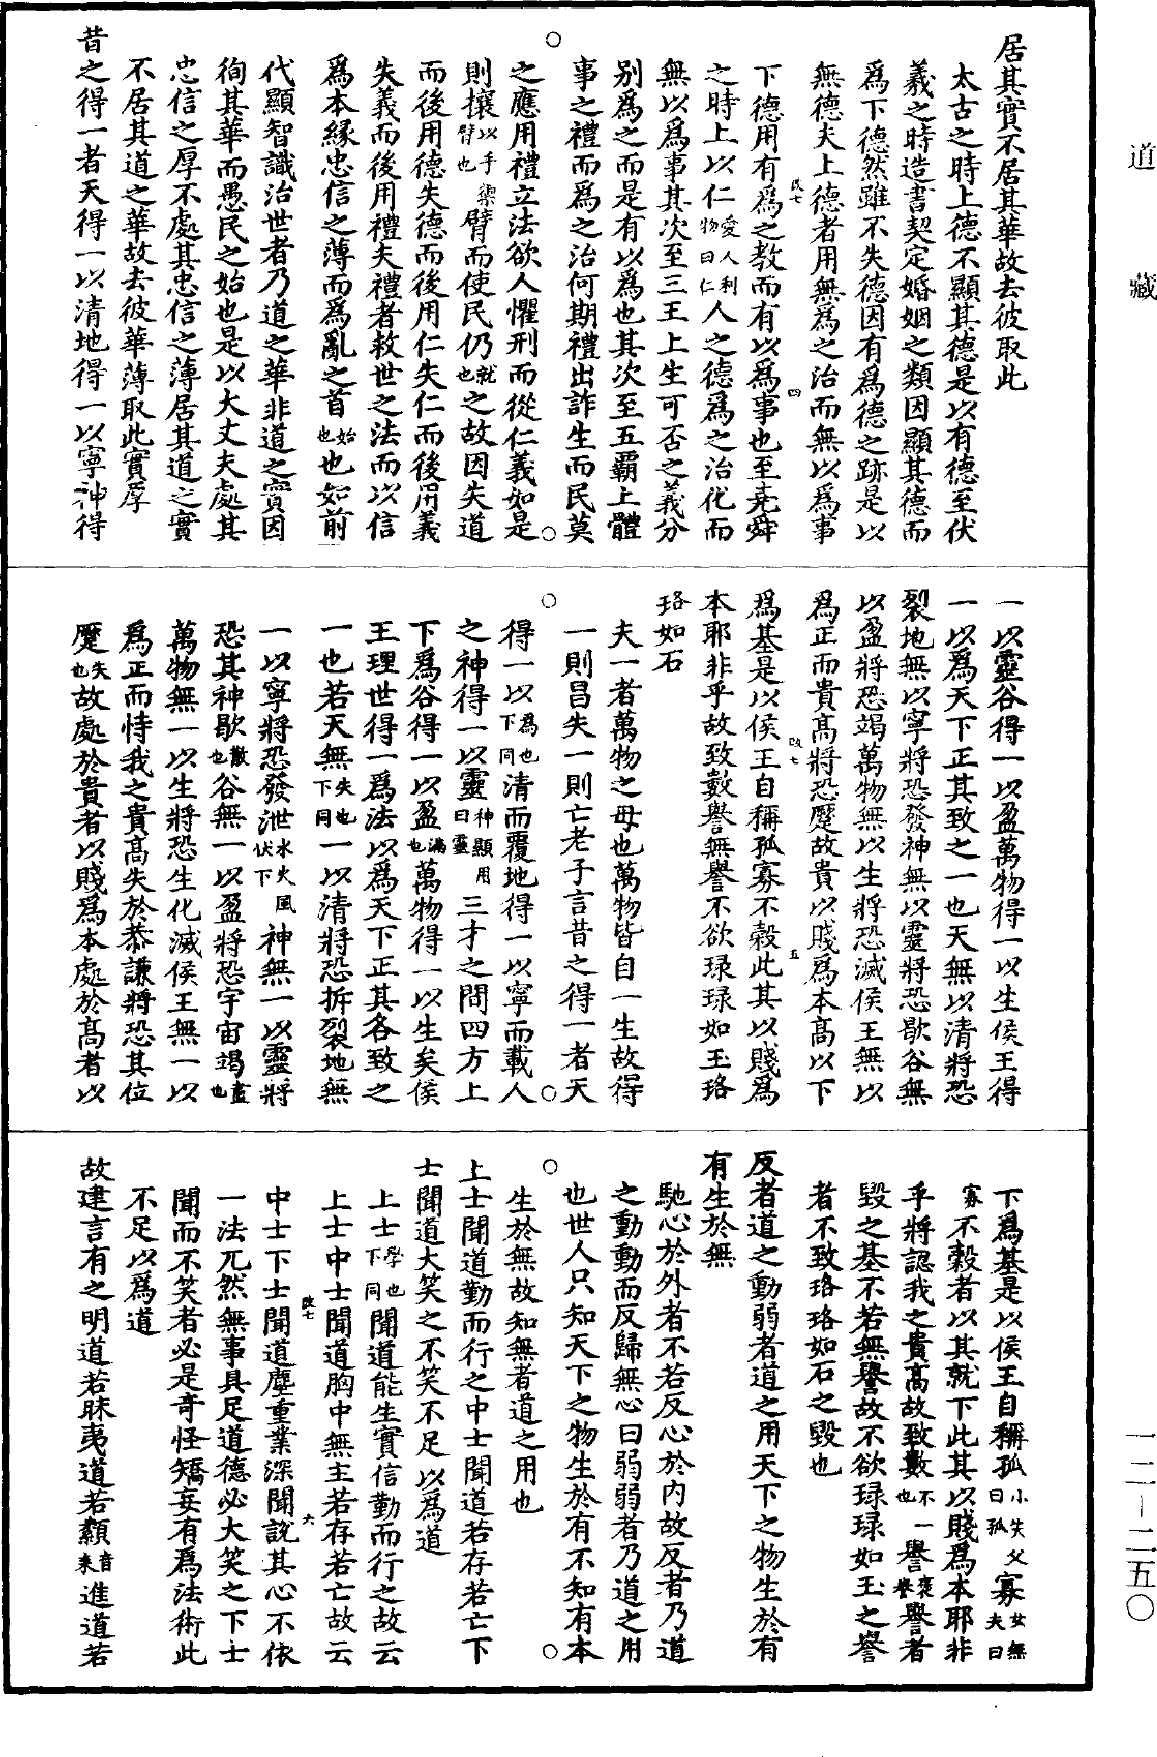 道藏
居其實不居其華故去彼取此
太古之時上德不顯其德是以有德至伏
羲之時造書契定婚姻之類因顯其德而
為下德然雖不失德因有為德之跡是以
無德夫上德者用無為之治而無以為事
下德用有為之教而有以為事也至堯舜
之時上以仁愛人利物曰仁人之德為之治化而
無以為事其次至三王上生可否之義分
别為之而是有以為也其次至五霸上體
事之禮而為之治何期禮出詐生而民莫
之應用禮立法欲人懼刑而從仁義如是
則攘以手禦臂也臂而使民仍就也之故因失道
而後用德失德而後用仁失仁而後用義
失義而後用禮夫禮者救世之法而以信
為本緣忠信之薄而為亂之首始也也如前
代顯智識治世者乃道之華非道之實因
徇其華而愚民之始也是以大丈夫處其
忠信之厚不處其忠信之薄居其道之實
不居其道之華故去彼華薄取此實厚
昔之得一者天得一以清地得一以寧神得
一以靈谷得一以盈萬物得一以生侯王得
一以為天下正其致之一也天無以清將恐
裂地無以寧將恐發神無以靈將恐歇谷無
以盈將恐竭萬物無以生將恐滅侯王無以
為正而貴高將恐蹷故貴以賤為本高以下
為基是以侯王自稱孤寡不穀此其以賤為
本耶非乎故致數譽無譽不欲琭琭如玉珞
珞如石
夫一者萬物之母也萬物皆自一生故得
一則昌失一則亡老子言昔之得一者天
得一以為也下同清而覆地得一以寧而載人
之神得一以靈神顯用曰靈三才之間四方上
下為谷得一以盈滿也萬物得一以生矣侯
王理世得一為法以為天下正其各致之
一也若天無失也下同一以清將恐拆裂地無
一以寧將恐發泄水火風伏下神無一以靈將
恐其神歇散也谷無一以盈將恐宇宙竭盡也
萬物無一以生將恐生化滅侯王無一以
為正而恃我之貴高失於恭謙將恐其位
蹷失也故處於貴者以賤為本處於高者以
下為基是以侯王自稱孤小失父曰孤寡女無夫曰寡
不穀者以其就下此其以賤為本耶非
乎將認我之貴高故致數不一也譽褒譽譽者
毀之基不若無譽故不欲琭琭如玉之譽
者不致珞珞如石之毀也
反者道之動弱者道之用天下之物生於有
有生於無
馳心於外者不若反心於内故反者乃道
之動動而反歸無心曰弱弱者乃道之用
也世人只知天下之物生於有不知有本
生於無故知無者道之用也
上士聞道勤而行之中士聞道若存若亡下
士聞道大笑之不笑不足以為道
上士學也下同聞道能生實信勤而行之故云
上士中士聞道胸中無主若存若亡故云
中士下士聞道塵重業深聞說其心不依
一法兀然無事具足道德必大笑之下士
聞而不笑者必是奇怪矯妄有為法術此
不足以為道
故建言有之明道若昧夷道若纇音耒進道若
改七
四
改七
五
改七
六
一二－二五〇